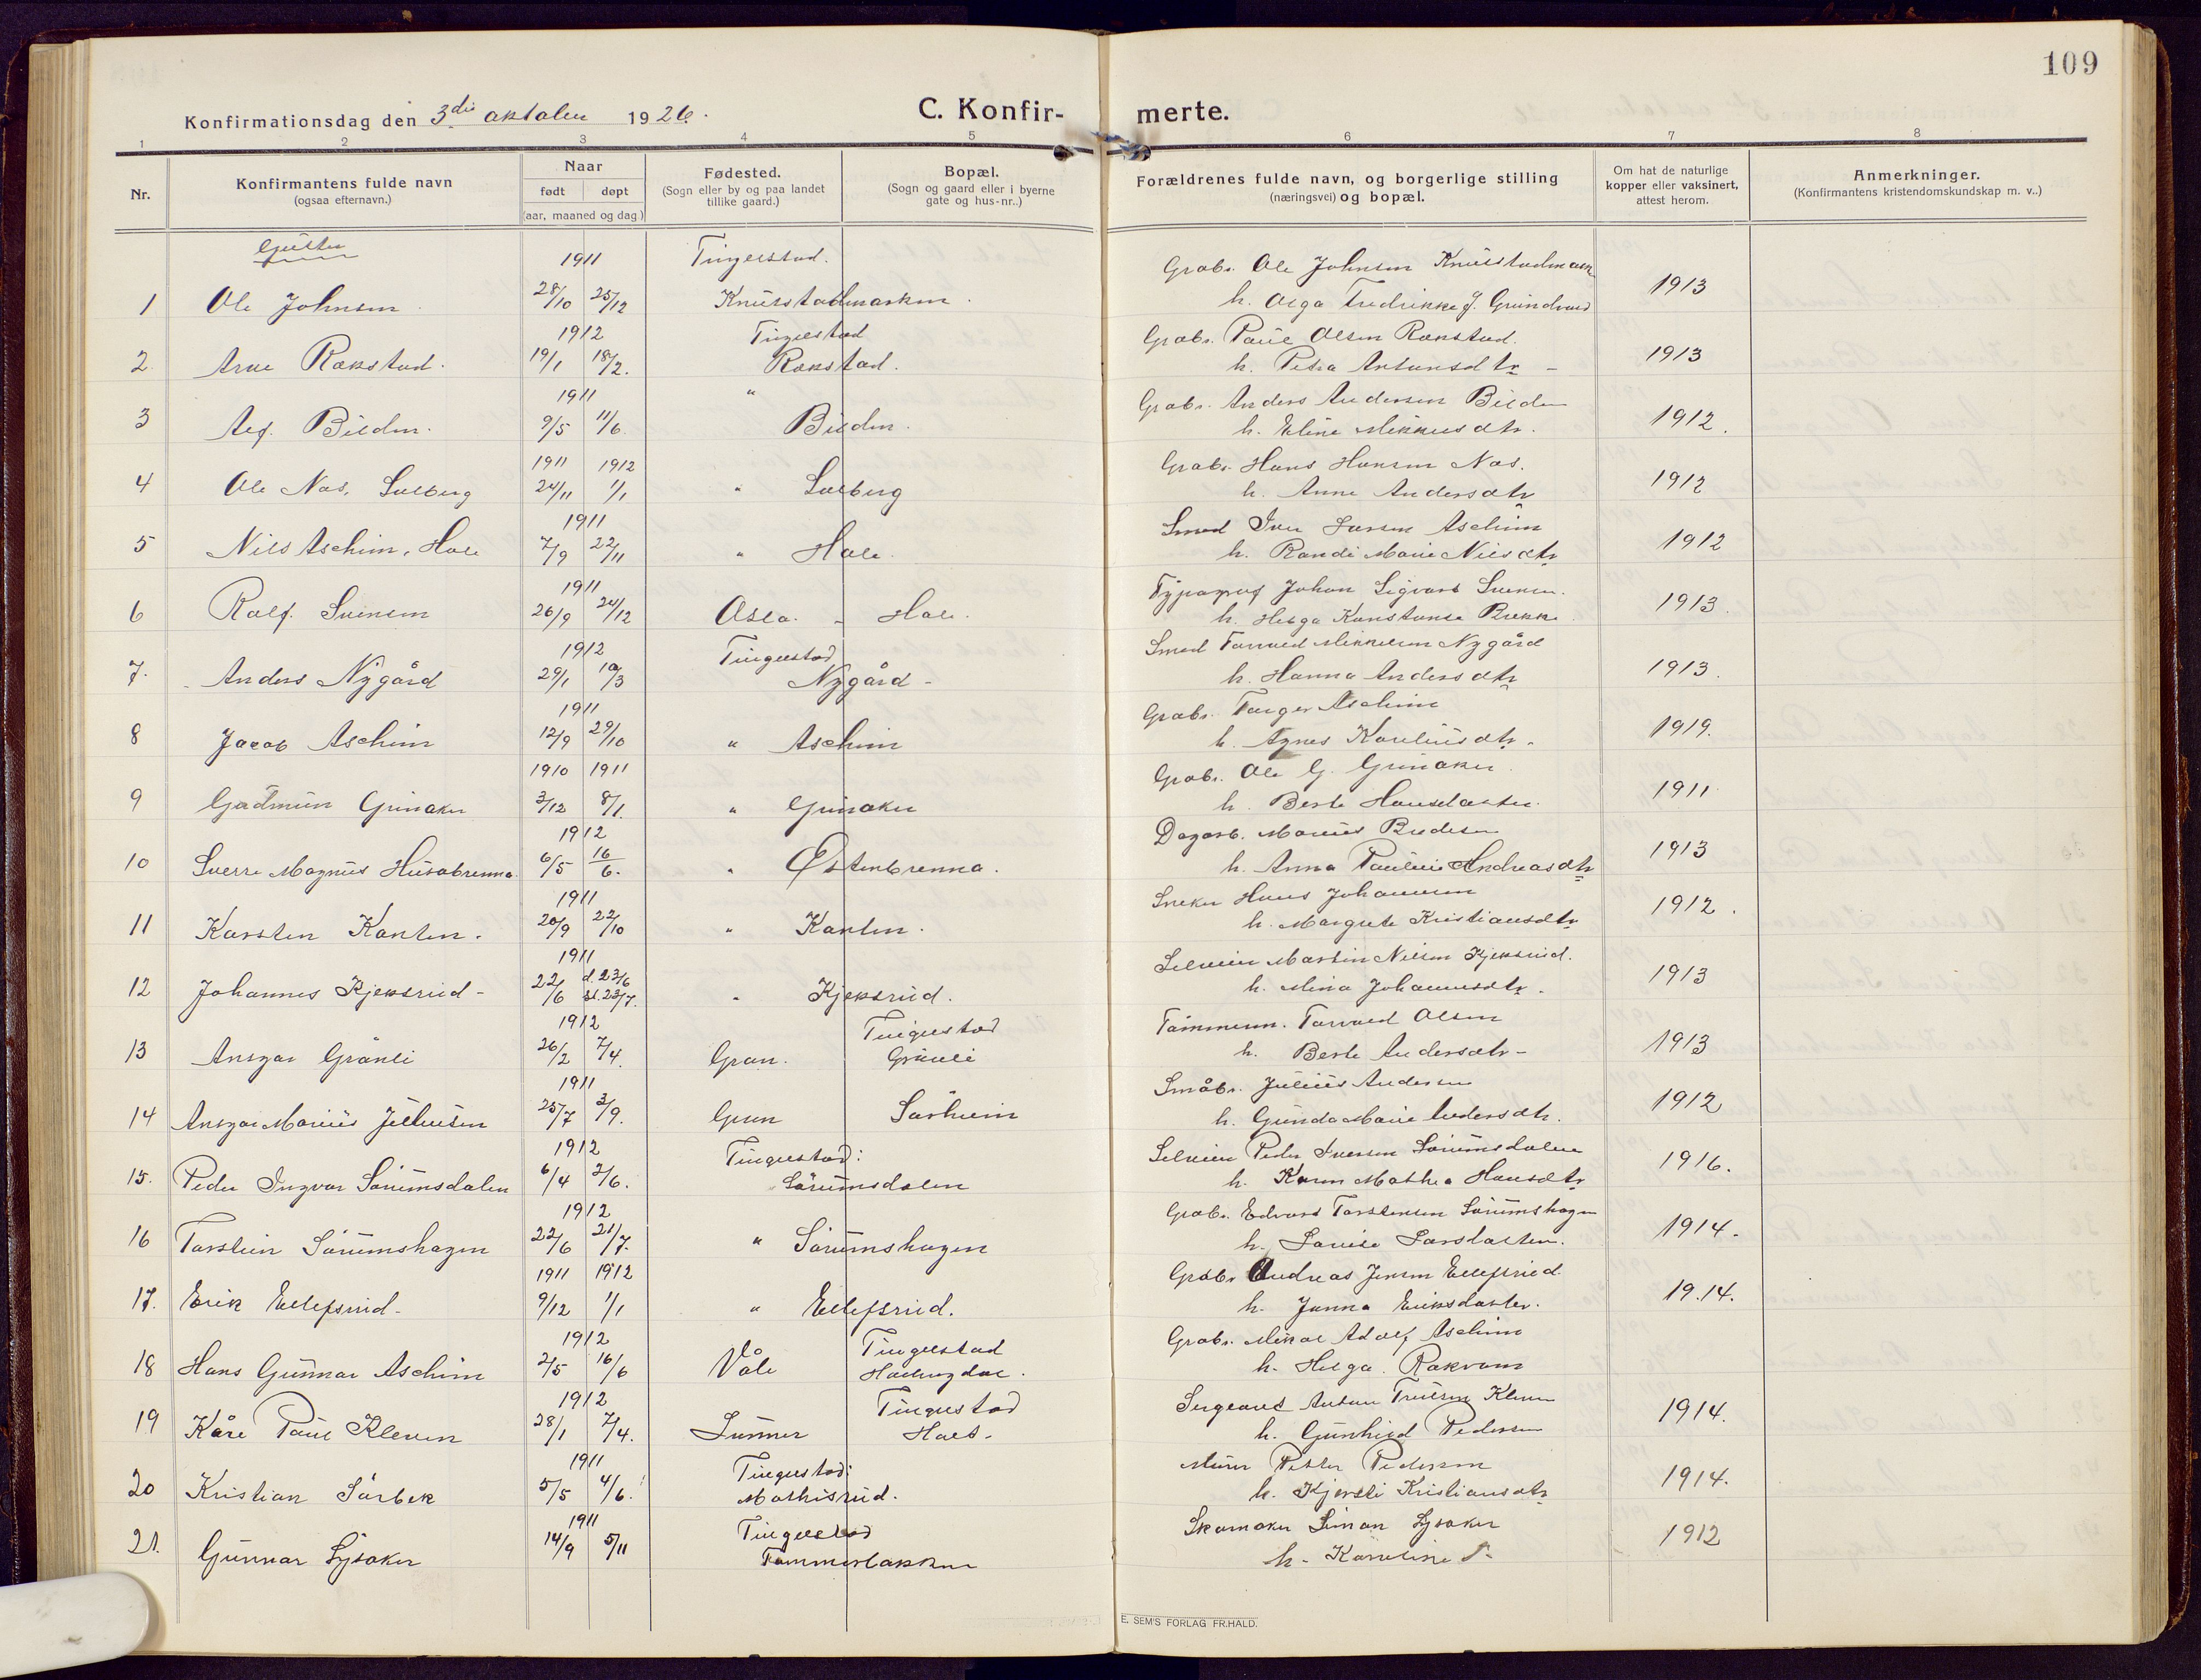 109
Konfirmationsdag den 3die oktober 1926.
C. Konfirmerte.
1 2 3 4 5 6 7 8
Nr.
Konfirmantens fulde navn
(ogsaa efternavn.)
Naar
født døpt
(aar, maaned og dag)
Fødested.
(Sogn eller by og paa landet
tillike gaard.)
Bopæl.
(Sogn og gaard eller i byerne
gate og hus-nr..)
Forældrenes fulde navn, og borgerlige stilling
(næringsvei) og bopæl.
Om hat de naturlige
kopper eller vaksinert,
attest herom.
Anmerkninger.
(Konfirmantens kristendomskundskap m. v..)
Gutter
1911 Tingelstad. Grabr. Ole Johnsen Knutstadmark
1 Ole Johnsen 28/10 25/12 Knutstadmarken. h. Olga Fredrikke J. Grindvold 1913
1912 Tingelstad Grabr. Paul Olsen Rokstad.
2 Arne Rokstad. 19/1 18/2. Rokstad. h. Petra Antonsdtr - 1913
1911 " Grabr. Anders Andersen Bilden
3 Alf. Bilden. 9/5 11/6. Bilden. h. Eline Mikkelsdtr. 1912.
1911 1912 Grabr. Hans Hansen Nas.
4 Ole Nas, Solberg 24/11 1/1 " Solberg h. Anne Andersdtr 1912
1911 Smed Iver Larsen Aschim
5 Nils Aschim, Hole 7/9 22/11 " Hole. h. Randi Marie Nilsdtr 1912
1911 Typograf Johan Sigvard Svensen.
6 Rolf. Svensen 26/9 24/12 Oslo. - Hole. h. Helga Konstanse Brekke 1913.
1912 Tingelstad Smed Torvald Mikkelsen Nygård
7. Anders Nygård 29/1 10/3 Nygård - h. Hanna Andersdtr 1913.
1911 Grabr. Torger Aschim
8 Jacob Aschim 12/9 29/10 " Aschim h. Agnes Kareliusdtr. 1919.
1910 1911 Grabr. Ole G. Grinaker.
9 Gudmun Grinaker 3/12 8/1. " Grinaker h. Berte Hansdatter. 1911
1912 Dagarb. Marius Bredesen
10 Sverre Magnus Husabrenna. 6/5 16/6. " Østenbrenna. h. Anna Pauline Andreasdtr 1913
1911 Sneker Hans Johannesen
11 Karsten Kanten. 20/9 22/10 " Kanten. h. Margrete Kristiansdtr 1912.
1911 Selveier Martin Nilsen Kjeksrud.
12 Johannes Kjeksrud - 22/6 d. 23/6 st. 23/7. " Kjeksrud. h. Mina Johannesdtr. 1913
1912 Tingelstad Tømmerm. Torvald Olsen
13 Ansgar Grønli 26/2 7/4. Gran. Grønli h. Berte Andersdtr - 1913
1911 Småbr. Julius Andersen
14 Ansgar Marius Juliussen 25/7 3/9. Gran Sørheim h. Gunda Marie Andersdtr. 1912
1912 Tingelstad: Selveier Peder Iversen Sørumsdalen
15. Peder Ingvar Sørumsdalen 6/4 2/6. Sørumsdalen h. Karen Mathea Hansdtr 1916.
1912 Grabr. Edvard Torstensen Sørumshagen
16 Torstein Sørumshagen 22/6 21/7. " Sørumshagen h. Lovise Larsdatter. 1914.
1911 1912 Grabr Andreas Jensen Ellefsrud.
17. Erik Ellefsrud - 9/12 1/1 " Ellefsrud. h. Janna Eriksdatter. 19.14.
1912 Tingelstad Grabr. Mikal Adolf Aschim
18 Hans Gunnar Aschim 2/5 16/6 Våle h. Helga. Rakvam
1912 Tingelstad Sergeant Anton Trulsen Kleven
19 Kåre Paul Kleven 28/1 7/4. Lunner Hols. h. Gunhild Pedersen 1914.
1911 Tingelstad: Murer Petter Pedersen
20 Kristian Sørbek 5/5 4/6. Mathisrud. h. Kjersti Kristiansdtr 1914.
1911 Tingelstad Skomaker Simon Lysaker
21. Gunnar Lysaker 14/9 5/11 Tømmerløkken h. Karoline 1912
E. SEM'S FORLAG FR.HALD.